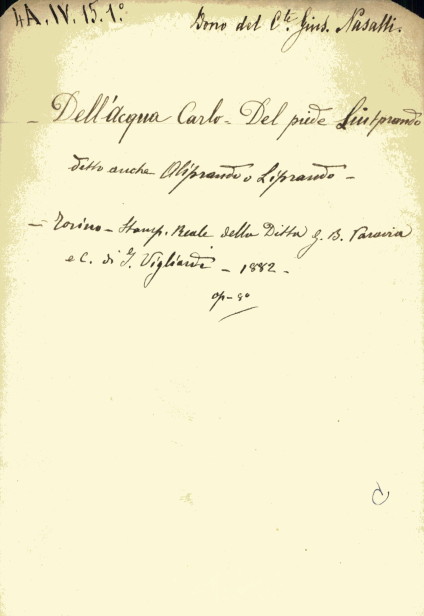 4A. IV. 15. 1.°
Dono del C.te Gius. Nasalli.
– Dell'Acqua Carlo – Del piede Liutprando
detto anche Aliprando o Liprando –
– Torino – Stamp. Reale della Ditta G. B. Paravia
e C. di I. Vigliardi – 1882 –
op – 8°